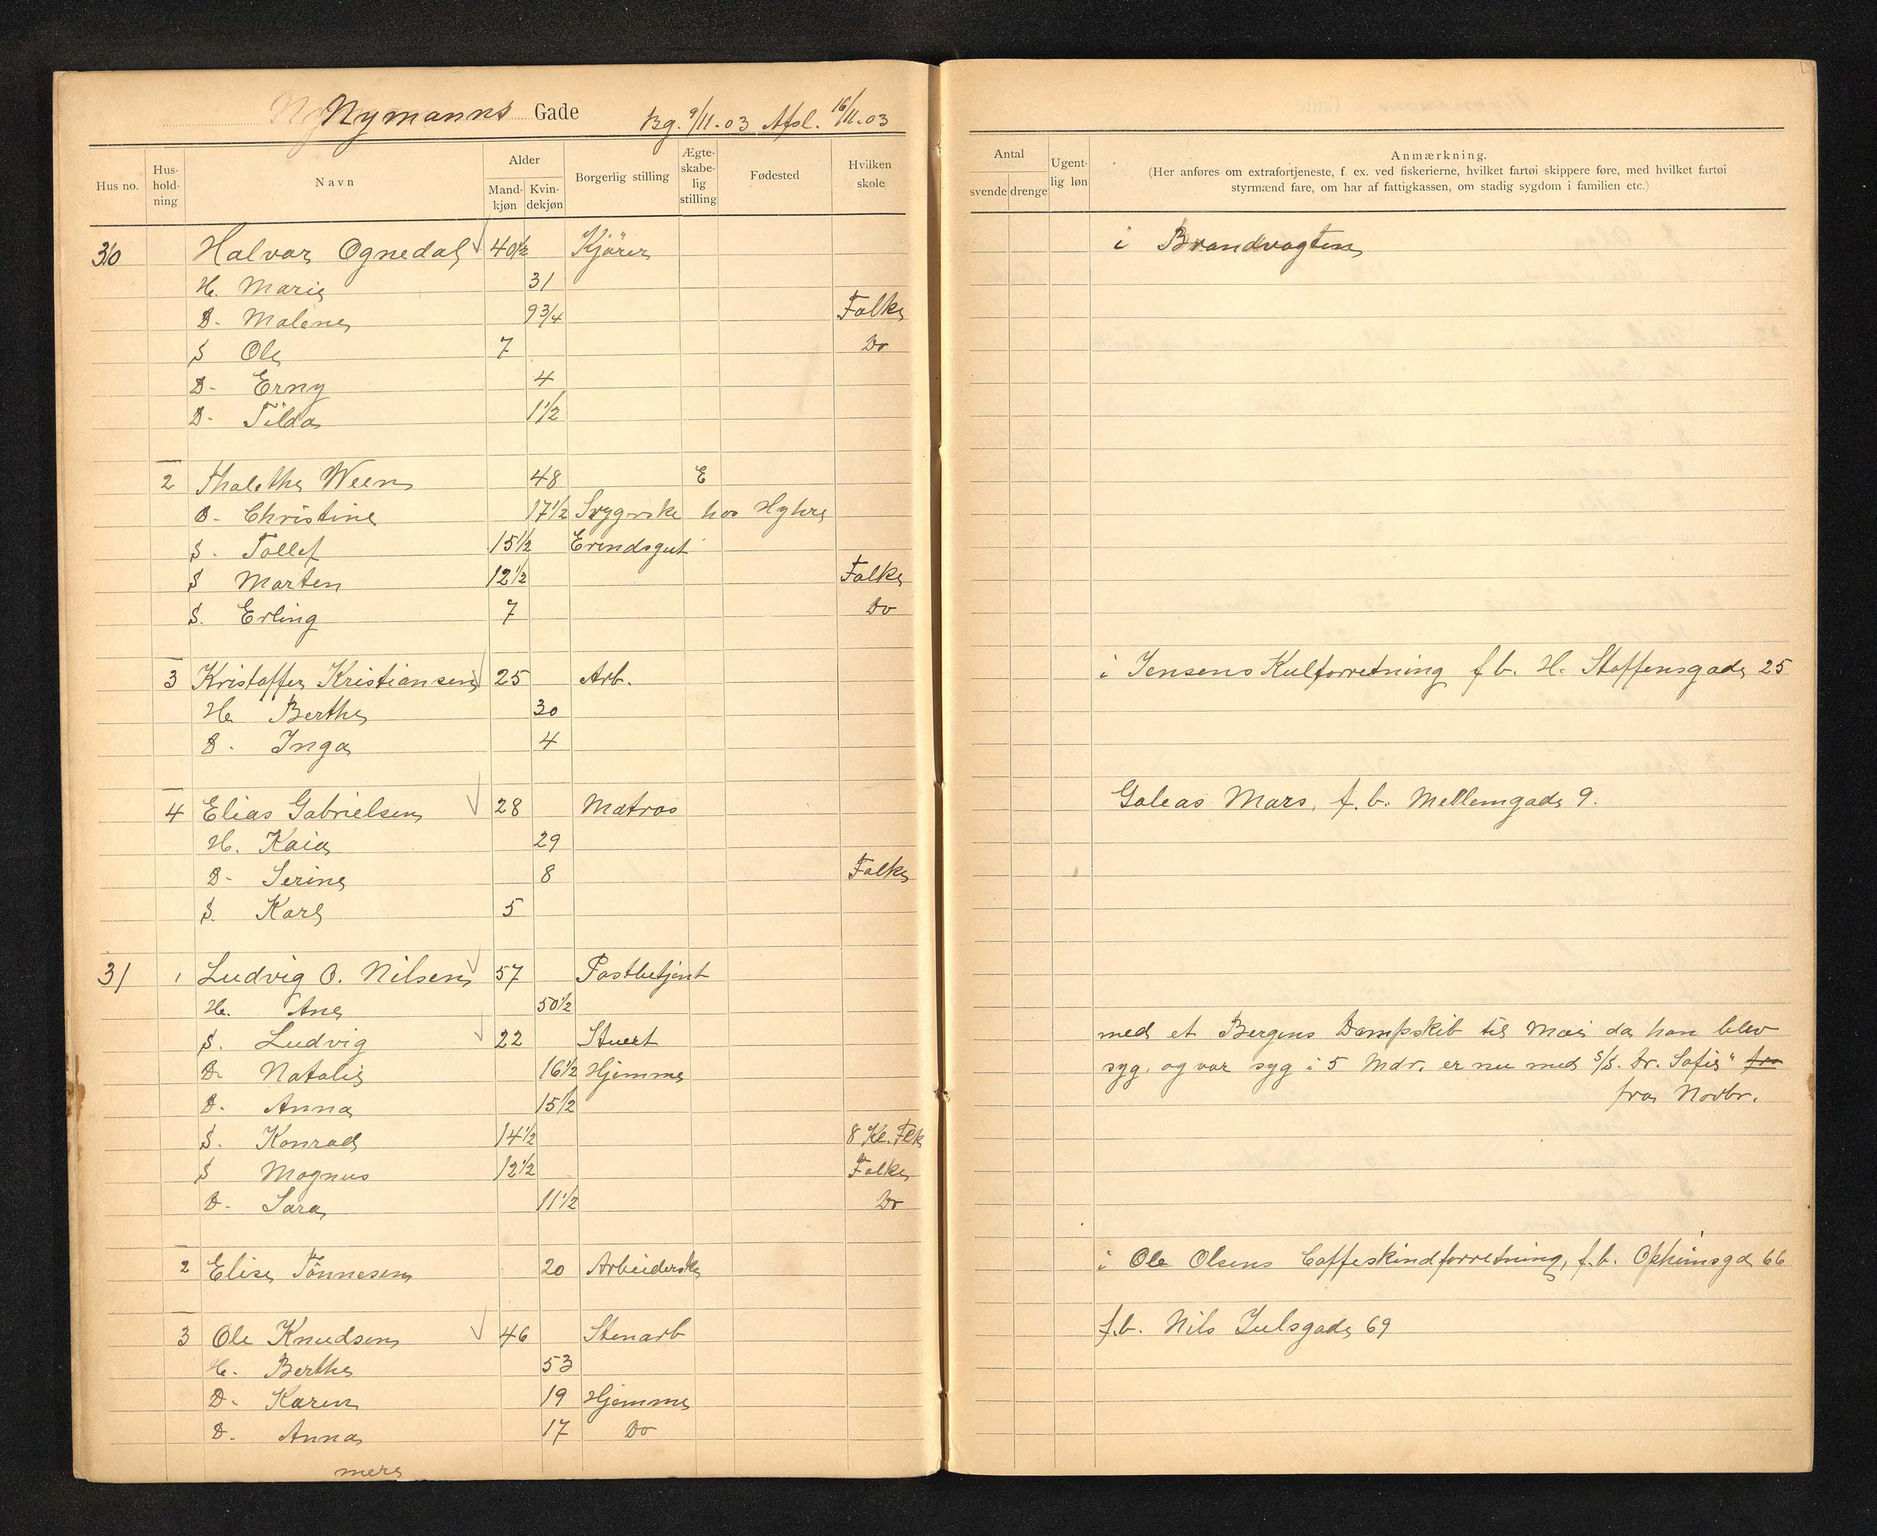 Nymanns Gade Bg. 9/11.03 Afsl. 16/11.03
Hus no. Hus-hold-ning Navn Alder Mand-kjøn Kvin-dekjøn Borgerlig stilling Ægte-skabe-lig stilling Fødested Hvilken skole
30 Halvar Ognedal 40½ Kjører
H. Marie 31
D. Malene 9¾ Folke
S Ole 7 Do
D. Erny 4
D. Tilda 1½
2 Thalethe Ween 48 E
D. Christine 17½ Sygerske hos Hyhre
S. Tollef 15½ Erindsgut
S Marten 12½ Folke
S. Erling 7 Do
3 Kristoffer Kristiansen 25 Arb.
H. Berthe 30
D. Inga 4
4 Elias Gabrielsen 28 Matros
H. Kaia 29
D. Serine 8 Folke
S. Karl 5
31 1 Ludvig O. Nilsen 57 Postbetjent
H. Ane 50½
S. Ludvig 22 Stuert
D. Natalie 16½ Hjemme
D. Anna 15½
S. Konrad 14½ 8 Kl. Flk
S Magnus 12½ Folke
D. Sara 11½ Do
2 Elise Tönnesen 20 Arbeiderske
3 Ole Knudsen 46 Stenarb
H. Berthe 53
D. Karen 19 Hjemme
D. Anna 17 Do
mere
Antal svende drenge Ugent-lig løn Anmærkning.
(Her anføres om extrafortjeneste, f. ex. ved fiskerierne, hvilket fartøi skippere føre, med hvilket fartøi
styrmænd fare, om har af fattigkassen, om stadig sygdom i familien etc.)
i Brandvagten
i Jensens Kulforretning f.b. H. Steffensgade 25
Galeas Mars, f.b. Mellemgade 9.
med et Bergens Dampskib til Mai da han blev
syg, og var syg i 5 Mdr. er nu med S/S. Dr. Sofie" fra
fra Novbr.
i Ole Olsens Caffeskindforretning, f.b. Opheimsgd 66
f.b. Nils Julsgade 69